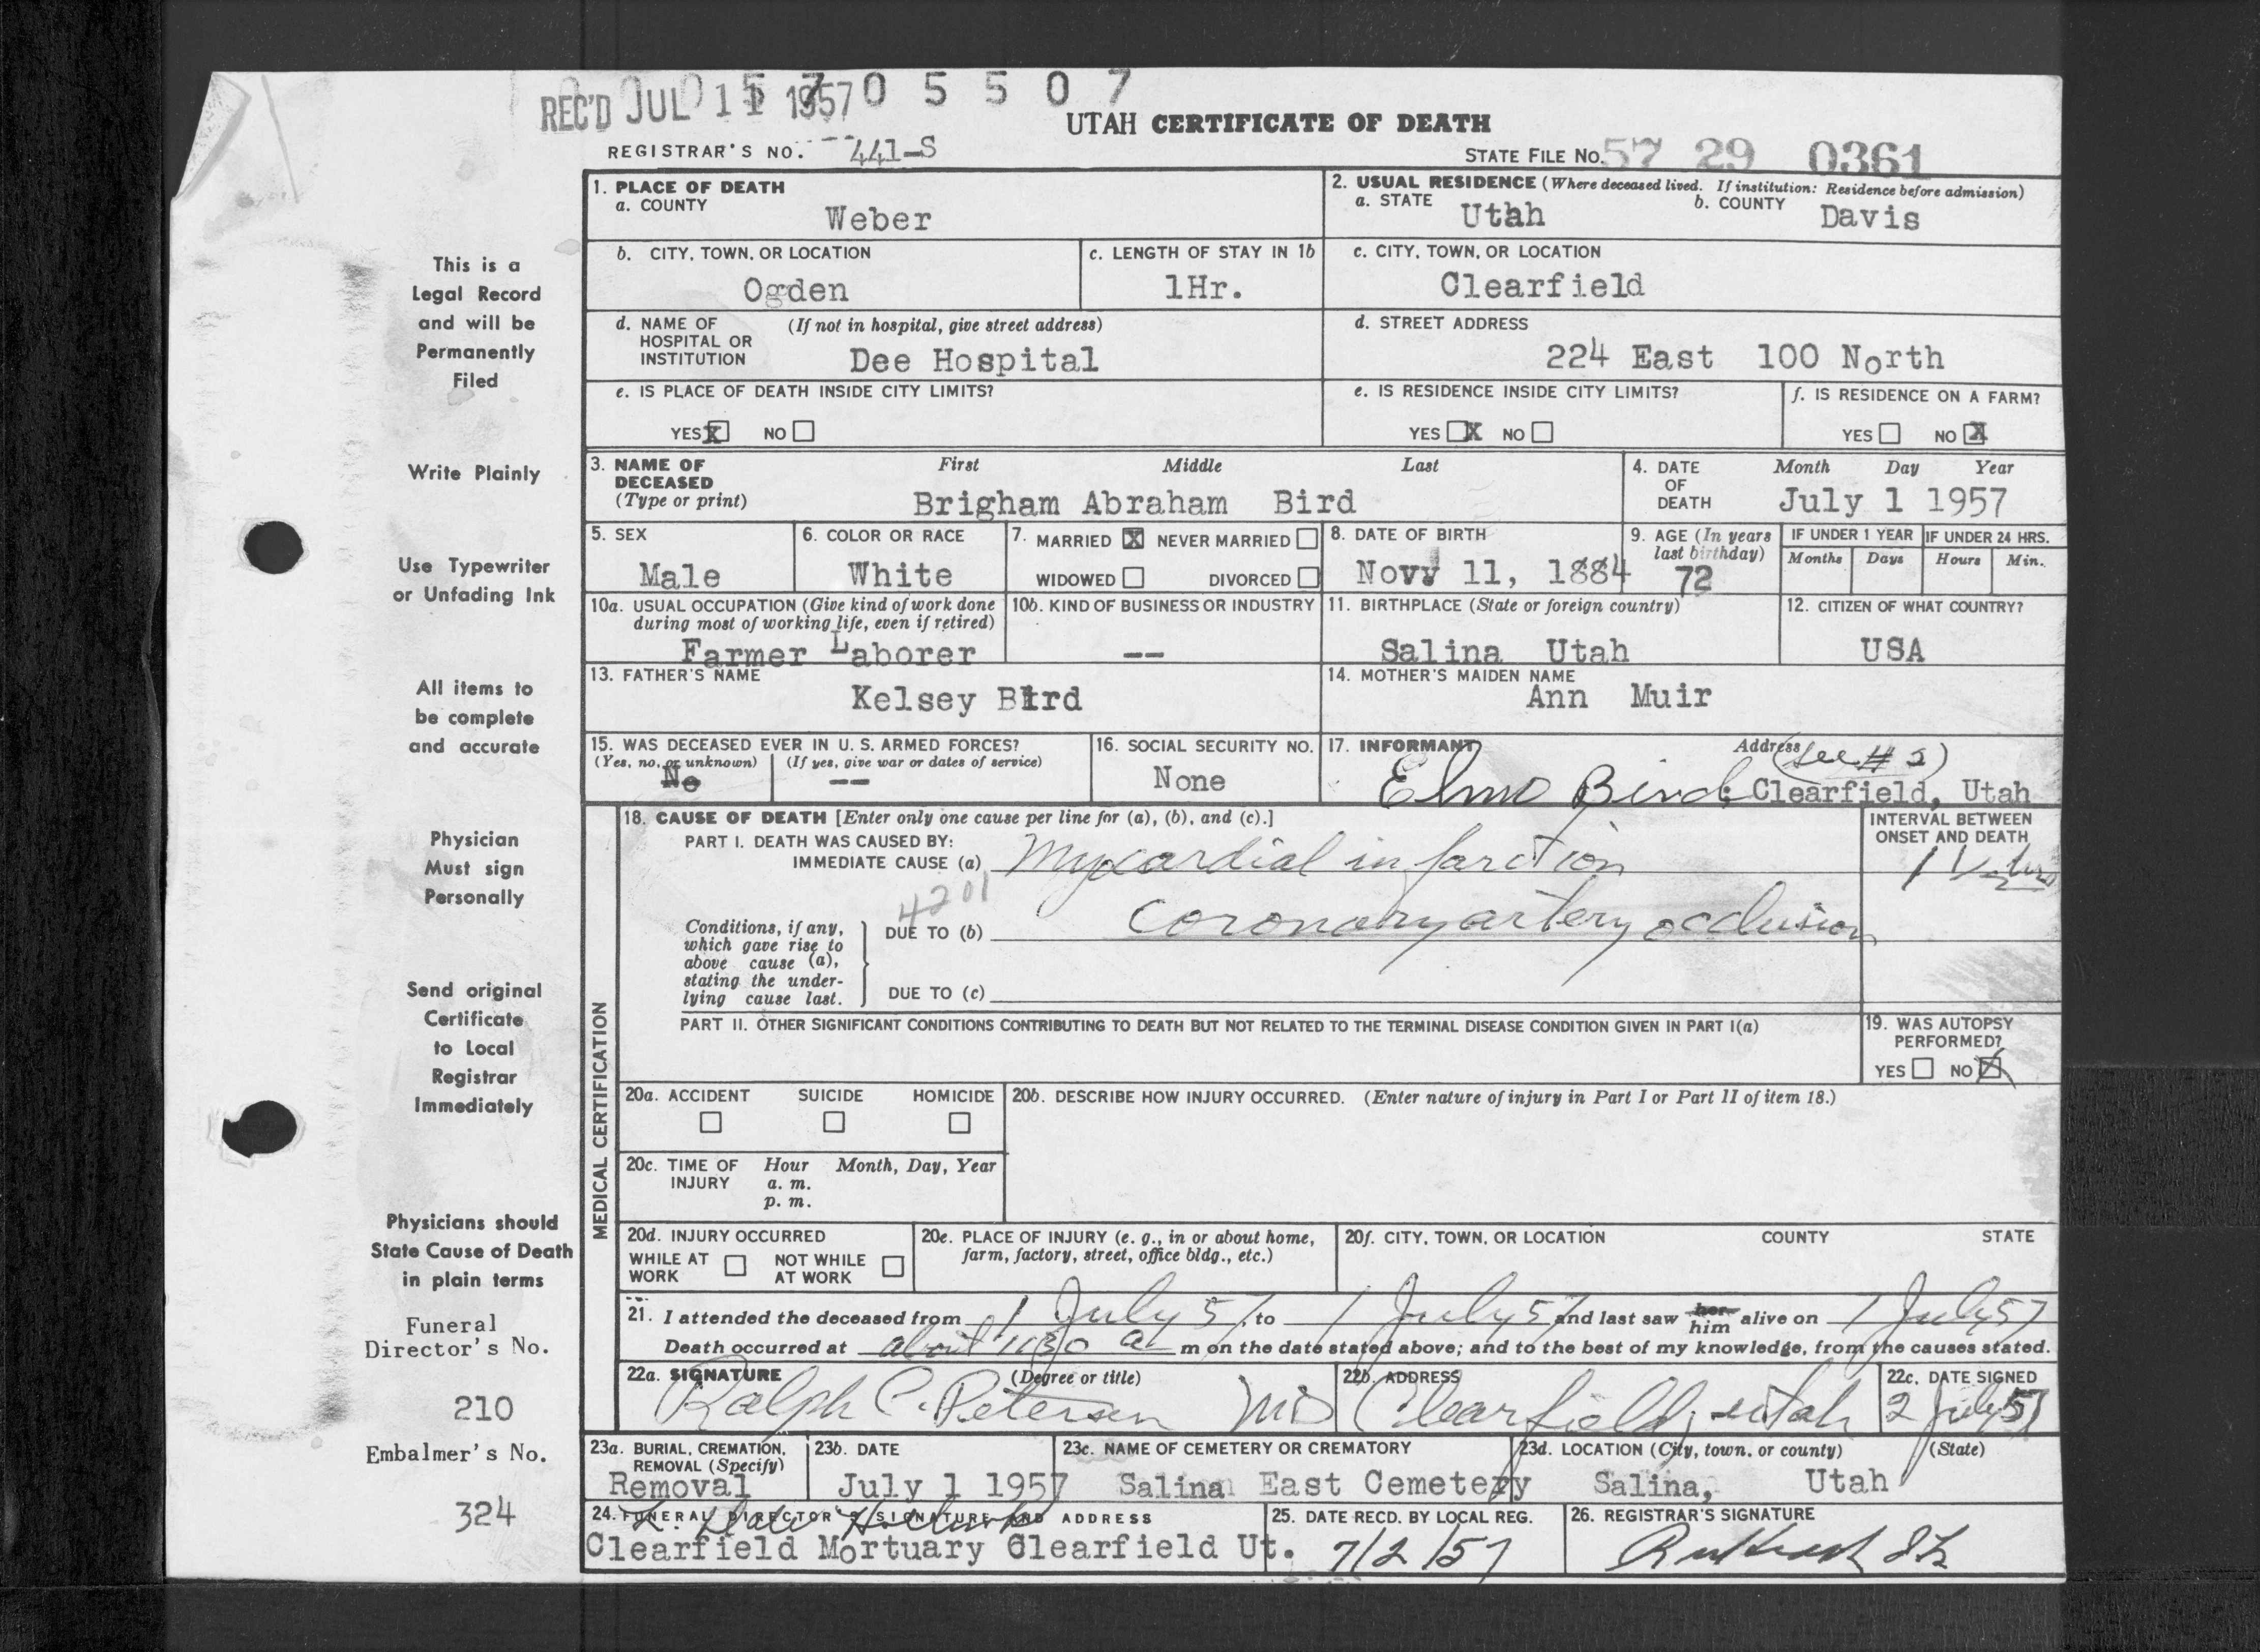 REC'D JUL 11 1957 0 5 5 0 7
UTAH CERTIFICATE OF DEATH
REGISTRAR'S NO. 441-S
STATE FILE NO. 57 29 0361
1. PLACE OF DEATH
a. COUNTY
Weber
2. USUAL RESIDENCE (Where deceased lived. If institution: Residence before admission)
a. STATE Utah b. COUNTY Davis
b. CITY, TOWN, OR LOCATION
Ogden
c. LENGTH OF STAY IN 1b
1Hr.
c. CITY, TOWN, OR LOCATION
Clearfield
d. NAME OF HOSPITAL OR INSTITUTION (If not in hospital, give street address)
Dee Hospital
d. STREET ADDRESS
224 East 100 North
e. IS PLACE OF DEATH INSIDE CITY LIMITS?
YES X NO
e. IS RESIDENCE INSIDE CITY LIMITS?
YES X NO
f. IS RESIDENCE ON A FARM?
YES NO X
3. NAME OF DECEASED (Type or print)
First Middle Last
Brigham Abraham Bird
4. DATE OF DEATH
Month Day Year
July 1 1957
5. SEX
Male
6. COLOR OR RACE
White
7. MARRIED X NEVER MARRIED
WIDOWED DIVORCED
8. DATE OF BIRTH
Nov 11, 1884
9. AGE (In years last birthday)
72
IF UNDER 1 YEAR
Months Days
IF UNDER 24 HRS.
Hours Min.
10a. USUAL OCCUPATION (Give kind of work done during most of working life, even if retired)
Farmer Laborer
10b. KIND OF BUSINESS OR INDUSTRY
--
11. BIRTHPLACE (State or foreign country)
Salina Utah
12. CITIZEN OF WHAT COUNTRY?
USA
13. FATHER'S NAME
Kelsey Bird
14. MOTHER'S MAIDEN NAME
Ann Muir
15. WAS DECEASED EVER IN U. S. ARMED FORCES?
(Yes, no, or unknown) (If yes, give war or dates of service)
No --
16. SOCIAL SECURITY NO.
None
17. INFORMANT Address (see # 2)
Elmo Bird Clearfield, Utah
MEDICAL CERTIFICATION
18. CAUSE OF DEATH [Enter only one cause per line for (a), (b), and (c).]
PART I. DEATH WAS CAUSED BY:
IMMEDIATE CAUSE (a) Myocardial infarction
INTERVAL BETWEEN ONSET AND DEATH
4201
Conditions, if any, which gave rise to above cause (a), stating the underlying cause last.
DUE TO (b) coronary artery occlusion
DUE TO (c)
PART II. OTHER SIGNIFICANT CONDITIONS CONTRIBUTING TO DEATH BUT NOT RELATED TO THE TERMINAL DISEASE CONDITION GIVEN IN PART I(a)
19. WAS AUTOPSY PERFORMED?
YES NO X
20a. ACCIDENT SUICIDE HOMICIDE
20b. DESCRIBE HOW INJURY OCCURRED. (Enter nature of injury in Part I or Part II of item 18.)
20c. TIME OF INJURY Hour Month, Day, Year
a. m.
p. m.
20d. INJURY OCCURRED
WHILE AT WORK NOT WHILE AT WORK
20e. PLACE OF INJURY (e. g., in or about home, farm, factory, street, office bldg., etc.)
20f. CITY, TOWN, OR LOCATION COUNTY STATE
21. I attended the deceased from 1 July 57, to 1 July 57 and last saw her him alive on 1 July 57
Death occurred at about 1130 a m on the date stated above; and to the best of my knowledge, from the causes stated.
22a. SIGNATURE (Degree or title)
Ralph C. Petersen MD
22b. ADDRESS
Clearfield, Utah
22c. DATE SIGNED
2 July 57
23a. BURIAL, CREMATION, REMOVAL (Specify)
Removal
23b. DATE
July 1 1957
23c. NAME OF CEMETERY OR CREMATORY
Salina East Cemetery
23d. LOCATION (City, town, or county) (State)
Salina, Utah
24. FUNERAL DIRECTOR'S SIGNATURE AND ADDRESS
Clearfield Mortuary Clearfield Ut.
25. DATE RECD. BY LOCAL REG.
7/2/57
26. REGISTRAR'S SIGNATURE
This is a
Legal Record
and will be
Permanently
Filed
Write Plainly
Use Typewriter
or Unfading Ink
All items to
be complete
and accurate
Physician
Must sign
Personally
Send original
Certificate
to Local
Registrar
Immediately
Physicians should
State Cause of Death
in plain terms
Funeral
Director's No.
210
Embalmer's No.
324